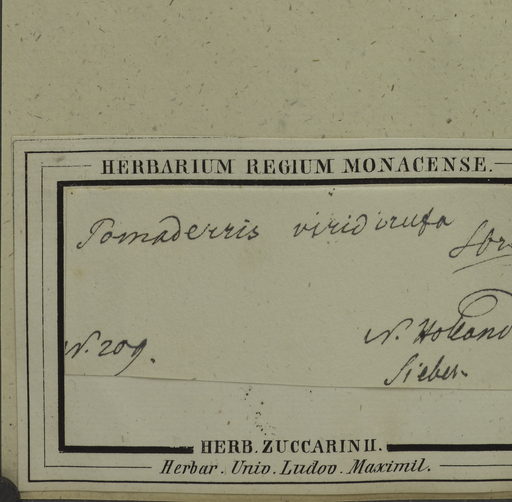 HERBARIUM REGIUM MONACENSE.
Pomaderris viridirufa
N. 209.
N. Holland
Sieber.
HERB. ZUCCARINII.
Herbar. Univ. Ludov. Maximil.